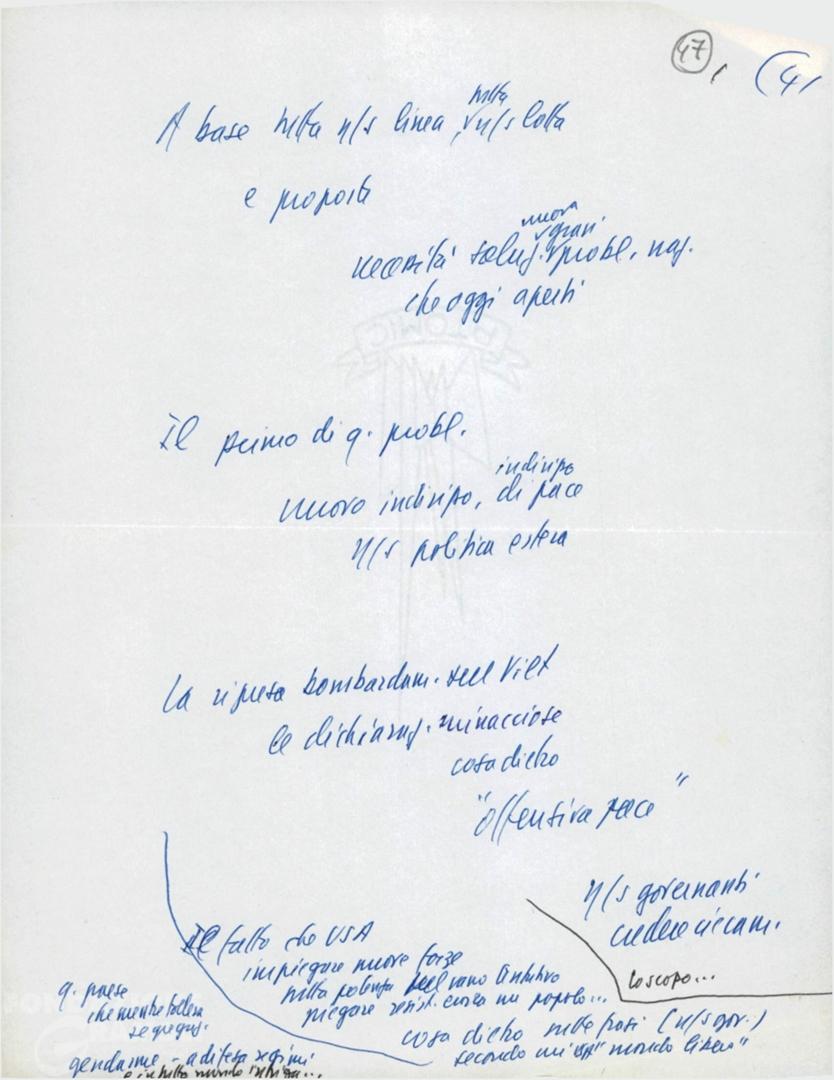 47 (4
A base della n/s linea, della n/s lotta
e proposte
necessità soluz. nuova gravi probl. naz.
che oggi aperti
Il primo di q. probl.
nuovo indirizzo, indirizzo di pace
n/s politica estera
La ripresa bombardam. nel Viet
le dichiaraz. minacciose
cosa dietro
"offensiva pace"
n/s governanti
credere ciecam.
lo scopo...
Il fatto che USA
impiegare nuove forze
nella polenta nel vano tentativo
piegare resist. eroica un popolo...
cosa dietro nelle frasi (n/s gov.)
secondo cui "mondo libero"
q. paese
che mentre tollera
segregaz.
gendarme - a difesa regimi
e in tutto mondo intriga...
ATOMIC